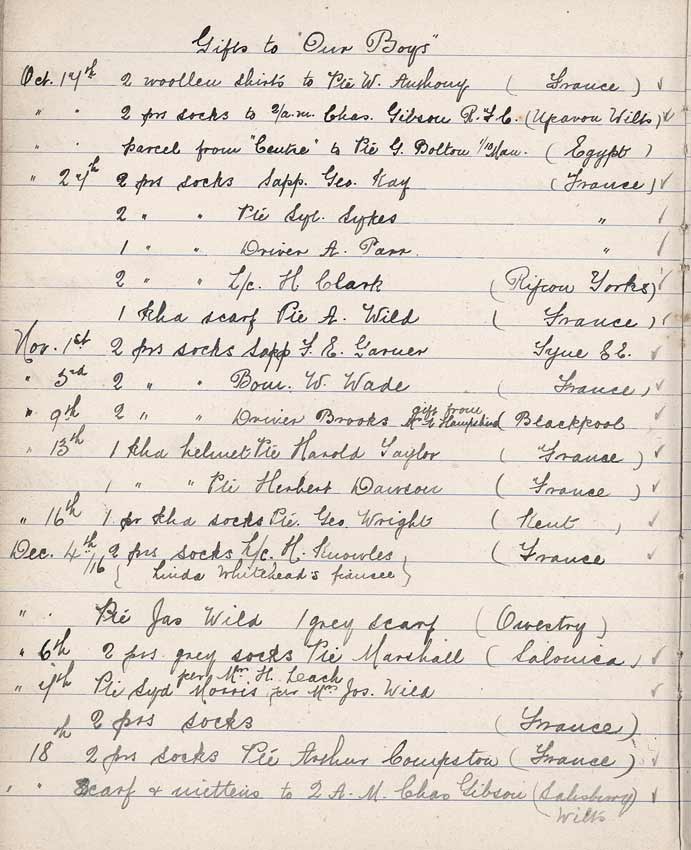 Gifts to "Our Boys"
Oct. 17th 2 woollen shirts to Pte W. Anthony (France) ✓
" " 2 prs socks to 2/a.m. Chas. Gibson R.F.C. (Upavon Wilts) ✓
" " parcel from "Centre" to Pte G. Bolton 1/10 Man. (Egypt)
" 24th 2 prs socks Sapp. Geo. Kay (France) ✓
2 " " Pte Syl. Sykes " ✓
1 " " Driver A. Parr " ✓
2 " " L/c. H Clark (Ripon Yorks) ✓
1 kha scarf Pte A. Wild (France) ✓
Nov. 1st 2 prs socks Sapp F. E. Garner Tyne EE. ✓
" 3rd 2 " " Bom. W. Wade (France) ✓
" 9th 2 " " Driver Brooks gift from Hampshire Blackpool ✓
" 13th 1 kha helmet Pte Harold Taylor (France) ✓
1 " " Pte Herbert Dawson (France) ✓
" 16th 1 pr kha socks Pte. Geo. Wright (Kent) ✓
Dec. 4th/16 2 prs socks L/c. H. Knowles (France ✓
{Linda Whitehead's fiancee}
" " Pte Jas Wild 1 grey scarf (Owestry)
" 6th 2 prs. grey socks Pte Marshall (Salonica) ✓
per Mrs. H. Leach
" 7th Pte Syd Morris per Mrs Jos. Wild ✓
2 prs socks (France)
18th 2 prs socks Pte Arthur Compston (France) ✓
" " Scarf & mittens to 2 A. M. Chas Gibson (Salisbury) ✓
Wilts